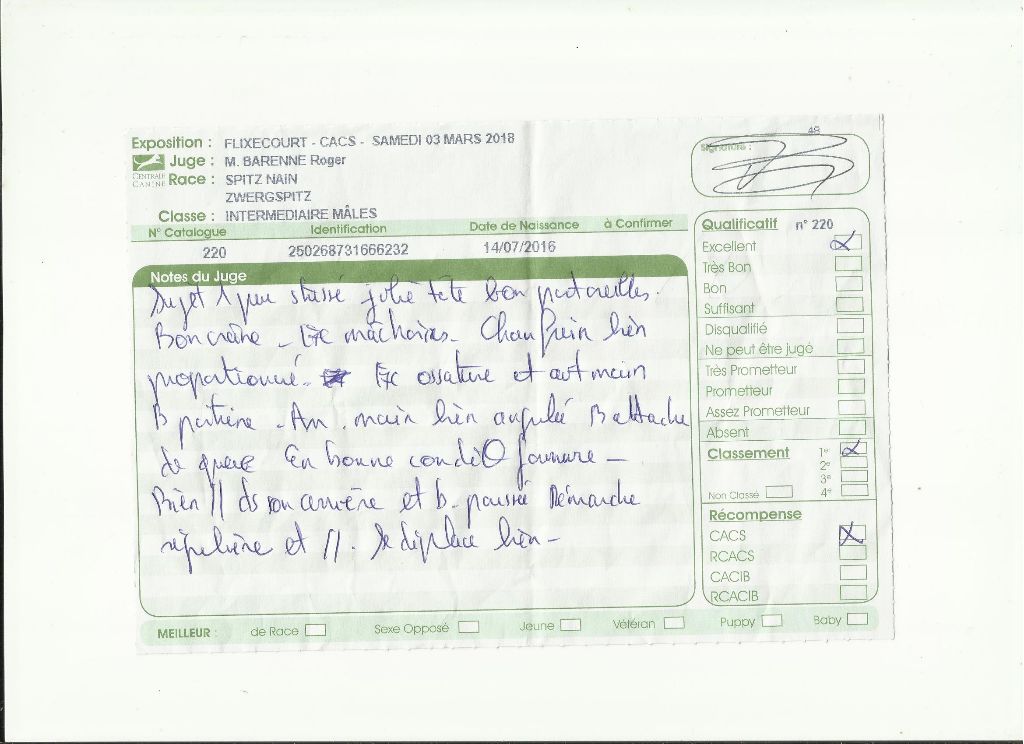 48
Exposition : FLIXECOURT - CACS - SAMEDI 03 MARS 2018
Juge : M. BARENNE Roger
CENTRALE CANINE
Race : SPITZ NAIN
ZWERGSPITZ
Classe : INTERMEDIAIRE MÂLES
Signature :
N° Catalogue Identification Date de Naissance à Confirmer
220 250268731666232 14/07/2016
Notes du Juge
Sujet 1 peu stressé jolie tête bon port oreilles.
Bon crâne - machoires - Chanfrein bien
proportionné. ossature et avt main
B poitrine - An . main bien angulée B attache
de queue En bonne condit° fourrure -
Bien // ds son arrière et b. poussée Démarche
régulière et //. Se déplace bien -
Qualificatif n° 220
Excellent
Très Bon
Bon
Suffisant
Disqualifié
Ne peut être jugé
Très Prometteur
Prometteur
Assez Prometteur
Absent
Classement 1°
2°
3°
Non Classé 4°
Récompense
CACS
RCACS
CACIB
RCACIB
MEILLEUR : de Race Sexe Opposé Jeune Vétéran Puppy Baby